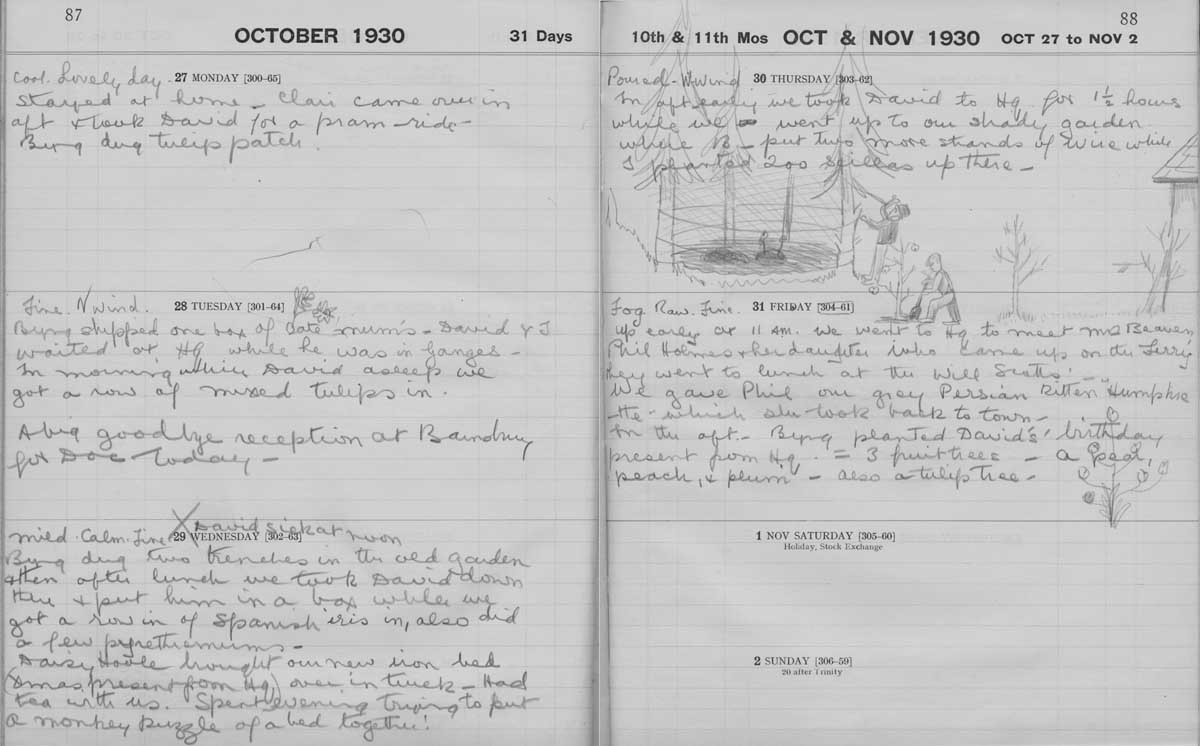 87
OCTOBER 1930 31 Days
Cool. Lovely day. 27 MONDAY [300-65]
Stayed at home - Clair came over in
aft & took David for a pram-ride-
Byng dug tulip patch.
Fine. N Wind. 28 TUESDAY [301-64]
Byng shipped one box of Late mum's - David & I
waited at Hq while he was in Ganges -
In morning while David asleep we
got a row of mixed tulips in.
A big goodbye reception at Bainbury
for Doc today -
Mild. Calm. Fine X David Sick at noon
29 WEDNESDAY [302-63]
Byng dug two trenches in the old garden
& then after lunch we took David down
there & put him in a box while we
got a row in of Spanish iris in, also did
a few pyrethemums -
Daisy brought our new iron bed
(Xmas present from Hq) over in truck - Had
tea with us. Spent evening trying to put
a monkey puzzle of a bed together!
88
10th & 11th Mos OCT & NOV 1930 OCT 27 to NOV 2
Poured - W wind 30 THURSDAY [303-62]
In aft. early we took David to Hq for 1½ hours
while we went up to our shady garden
where B - put two more strands of wire while
I planted 200 Scillas up there -
Fog. Raw. Fine. 31 FRIDAY [304-61]
Up early at 11 AM. we went to Hq to meet Mrs Beaven
Phil Holmes & her daughter who came up on the Ferry
they went to lunch at the Will Scotts' -
We gave Phil our grey Persian Kitten Humphre
- He - which she took back to town -
In the aft. - Byng planted David's birthday
present from Hq. = 3 fruit trees - a pear,
peach, & plum - also a tulip tree -
1 NOV SATURDAY [305-60]
Holiday, Stock Exchange
2 SUNDAY [306-59]
20 after Trinity